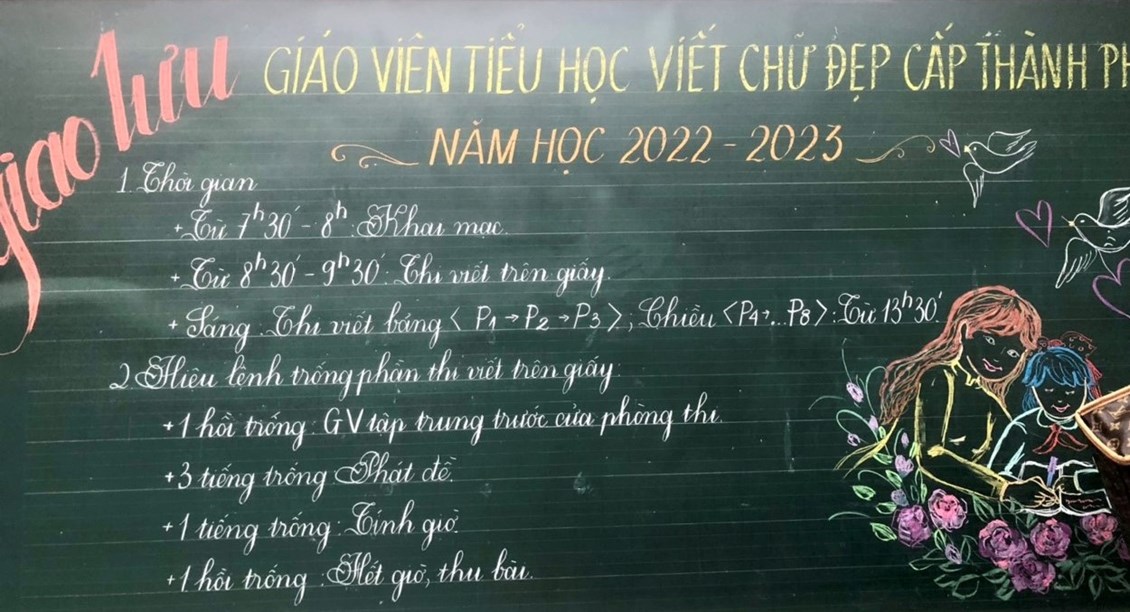 Giao lưu
GIÁO VIÊN TIỂU HỌC VIẾT CHỮ ĐẸP CẤP THÀNH PH
NĂM HỌC 2022 - 2023
1. Thời gian
+ Từ 7h30' - 8h: Khai mạc.
+ Từ 8h30' - 9h30': Thi viết trên giấy.
+ Sáng: Thi viết bảng < P1 → P2 → P3 >; Chiều < P4 → ... P8 >: Từ 13h30'.
2. Hiệu lệnh trống phần thi viết trên giấy:
+ 1 hồi trống: GV tập trung trước cửa phòng thi.
+ 3 tiếng trống: Phát đề.
+ 1 tiếng trống: Tính giờ.
+ 1 hồi trống: Hết giờ, thu bài.